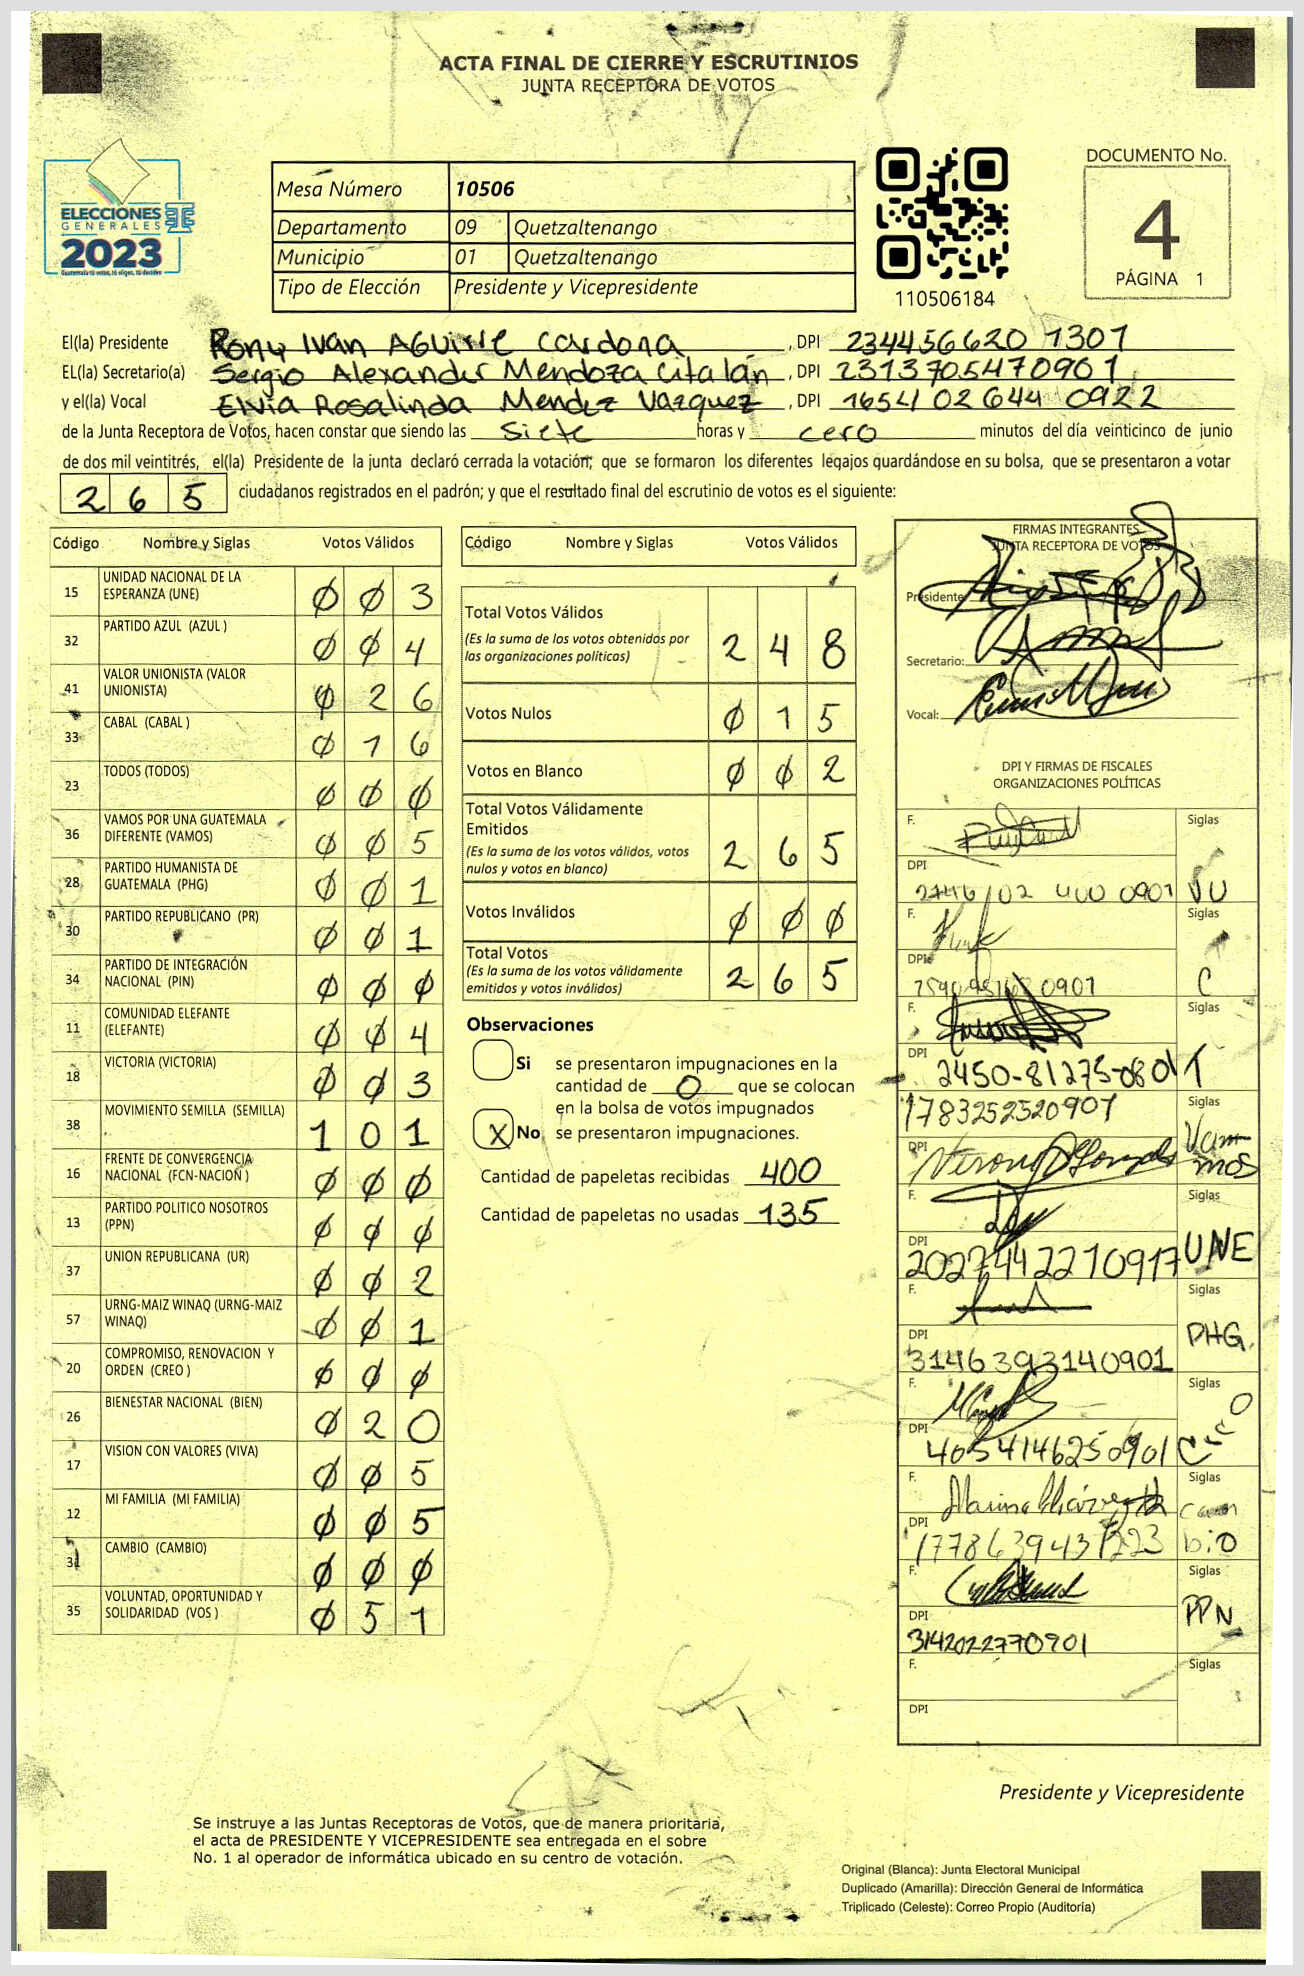 ACTA FINAL DE CIERRE Y ESCRUTINIOS
JUNTA RECEPTORA DE VOTOS
ELECCIONES
GENERALES
2023
Mesa Número 10506
Departamento 09 Quetzaltenango
Municipio 01 Quetzaltenango
Tipo de Elección Presidente y Vicepresidente
110506184
DOCUMENTO No.
4
PÁGINA 1
El(la) Presidente Rony Ivan Aguirre Cardona, DPI 234456620 1301
EL(la) Secretario(a) Sergio Alexander Mendoza Citalán, DPI 2313705470901
y el(la) Vocal Elvia Rosalinda Mendez Vazquez, DPI 1654 02644 0922
de la Junta Receptora de Votos, hacen constar que siendo las siete horas y cero minutos del día veinticinco de junio
de dos mil veintitrés, el(la) Presidente de la junta declaró cerrada la votación; que se formaron los diferentes legajos guardándose en su bolsa, que se presentaron a votar
265 ciudadanos registrados en el padrón; y que el resultado final del escrutinio de votos es el siguiente:
Código Nombre y Siglas Votos Válidos
15 UNIDAD NACIONAL DE LA ESPERANZA (UNE) 003
32 PARTIDO AZUL (AZUL ) 004
41 VALOR UNIONISTA (VALOR UNIONISTA) 026
33 CABAL (CABAL ) 016
23 TODOS (TODOS) 000
36 VAMOS POR UNA GUATEMALA DIFERENTE (VAMOS) 005
28 PARTIDO HUMANISTA DE GUATEMALA (PHG) 001
30 PARTIDO REPUBLICANO (PR) 001
34 PARTIDO DE INTEGRACIÓN NACIONAL (PIN) 000
11 COMUNIDAD ELEFANTE (ELEFANTE) 004
18 VICTORIA (VICTORIA) 003
38 MOVIMIENTO SEMILLA (SEMILLA) 101
16 FRENTE DE CONVERGENCIA NACIONAL (FCN-NACION ) 000
13 PARTIDO POLITICO NOSOTROS (PPN) 000
37 UNION REPUBLICANA (UR) 002
57 URNG-MAIZ WINAQ (URNG-MAIZ WINAQ) 001
20 COMPROMISO, RENOVACION Y ORDEN (CREO ) 000
26 BIENESTAR NACIONAL (BIEN) 020
17 VISION CON VALORES (VIVA) 005
12 MI FAMILIA (MI FAMILIA) 005
31 CAMBIO (CAMBIO) 000
35 VOLUNTAD, OPORTUNIDAD Y SOLIDARIDAD (VOS ) 051
Código Nombre y Siglas Votos Válidos
Total Votos Válidos 248
(Es la suma de los votos obtenidos por
las organizaciones políticas)
Votos Nulos 015
Votos en Blanco 002
Total Votos Válidamente
Emitidos 265
(Es la suma de los votos válidos, votos
nulos y votos en blanco)
Votos Inválidos 000
Total Votos 265
(Es la suma de los votos válidamente
emitidos y votos inválidos)
Observaciones
Si se presentaron impugnaciones en la
cantidad de 0 que se colocan
en la bolsa de votos impugnados
X No se presentaron impugnaciones.
Cantidad de papeletas recibidas 400
Cantidad de papeletas no usadas 135
FIRMAS INTEGRANTES
JUNTA RECEPTORA DE VOTOS
Presidente
Secretario:
Vocal:
DPI Y FIRMAS DE FISCALES
ORGANIZACIONES POLÍTICAS
F. Siglas
DPI 0901 VU
F. Siglas
DPI 0901 C
F. Siglas
DPI 2450-81275-0801 T
1783252520907 Siglas
DPI Vammos
F. Siglas
DPI 2027442210917 UNE
F. Siglas
DPI 3146393140901 PHG.
F. Siglas
DPI 4054146250901
F. Siglas
DPI 1778639431223 cambio
F. Siglas
DPI 3142022770901 PPN
F. Siglas
DPI
Presidente y Vicepresidente
Se instruye a las Juntas Receptoras de Votos, que de manera prioritaria,
el acta de PRESIDENTE Y VICEPRESIDENTE sea entregada en el sobre
No. 1 al operador de informática ubicado en su centro de votación.
Original (Blanca): Junta Electoral Municipal
Duplicado (Amarilla): Dirección General de Informática
Triplicado (Celeste): Correo Propio (Auditoría)